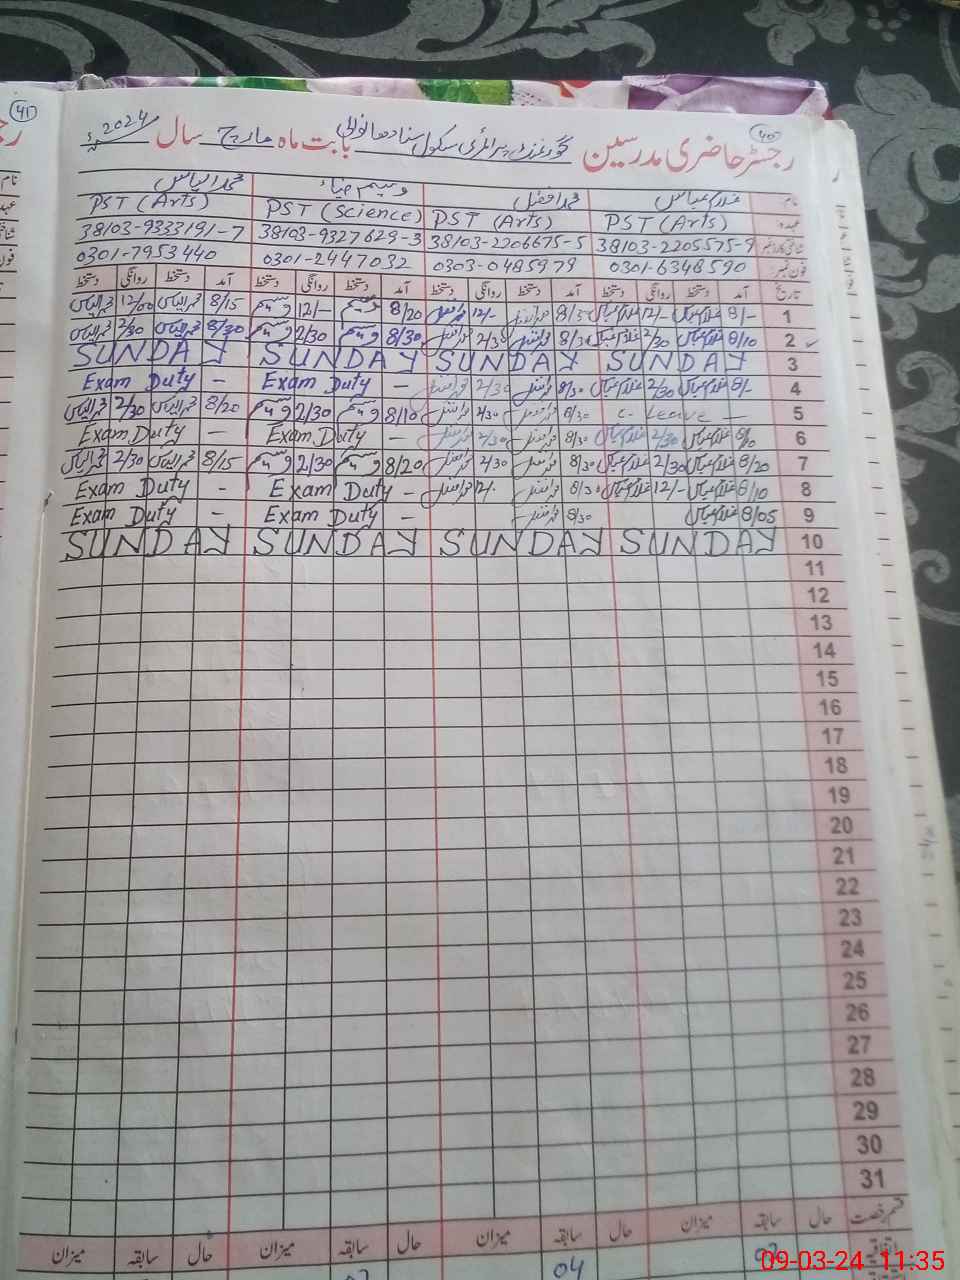 41
40
رجسٹر حاضری مدرسین گورنمنٹ پرائمری سکول بابت ماہ مارچ سال 2024ء
نام غلام عباس محمد افضل وسیم ضیاء محمد الیاس
عہدہ PST (Arts) PST (Arts) PST (Science) PST (Arts)
38103-2205575-9 38103-2206675-5 38103-9327629-3 38103-9333191-7
فون نمبر 0301-6348590 0303-0485979 0301-2447032 0301-7953440
تاریخ آمد دستخط روانگی دستخط آمد دستخط روانگی دستخط آمد دستخط روانگی دستخط آمد دستخط روانگی دستخط
1 8/- غلام عباس 12/- غلام عباس 8/15 محمد افضل 12/- محمد افضل 8/20 وسیم 12/- وسیم 8/15 محمد الیاس 12/00 محمد الیاس
2 8/10 غلام عباس 2/30 غلام عباس 8/30 محمد افضل 2/30 محمد افضل 8/30 وسیم 2/30 وسیم 8/30 محمد الیاس 2/30 محمد الیاس
3 SUNDAY SUNDAY SUNDAY SUNDAY
4 8/- غلام عباس 2/30 غلام عباس 8/30 محمد افضل 2/30 محمد افضل - Exam Duty - Exam Duty
5 C- Leave — 8/30 محمد افضل 2/30 محمد افضل 8/10 وسیم 2/30 وسیم 8/20 محمد الیاس 2/30 محمد الیاس
6 8/10 غلام عباس 2/30 غلام عباس 8/30 محمد افضل 2/30 محمد افضل - Exam Duty - Exam Duty
7 8/20 غلام عباس 2/30 غلام عباس 8/30 محمد افضل 2/30 محمد افضل 8/20 وسیم 2/30 وسیم 8/15 محمد الیاس 2/30 محمد الیاس
8 8/10 غلام عباس 12/- غلام عباس 8/30 محمد افضل 12/- محمد افضل - Exam Duty - Exam Duty
9 8/05 غلام عباس 8/30 محمد افضل - Exam Duty - Exam Duty
10 SUNDAY SUNDAY SUNDAY SUNDAY
11
12
13
14
15
16
17
18
19
20
21
22
23
24
25
26
27
28
29
30
31
قسم رخصت حال سابقہ میزان حال سابقہ میزان حال سابقہ میزان حال سابقہ میزان
04
09-03-24 11:35